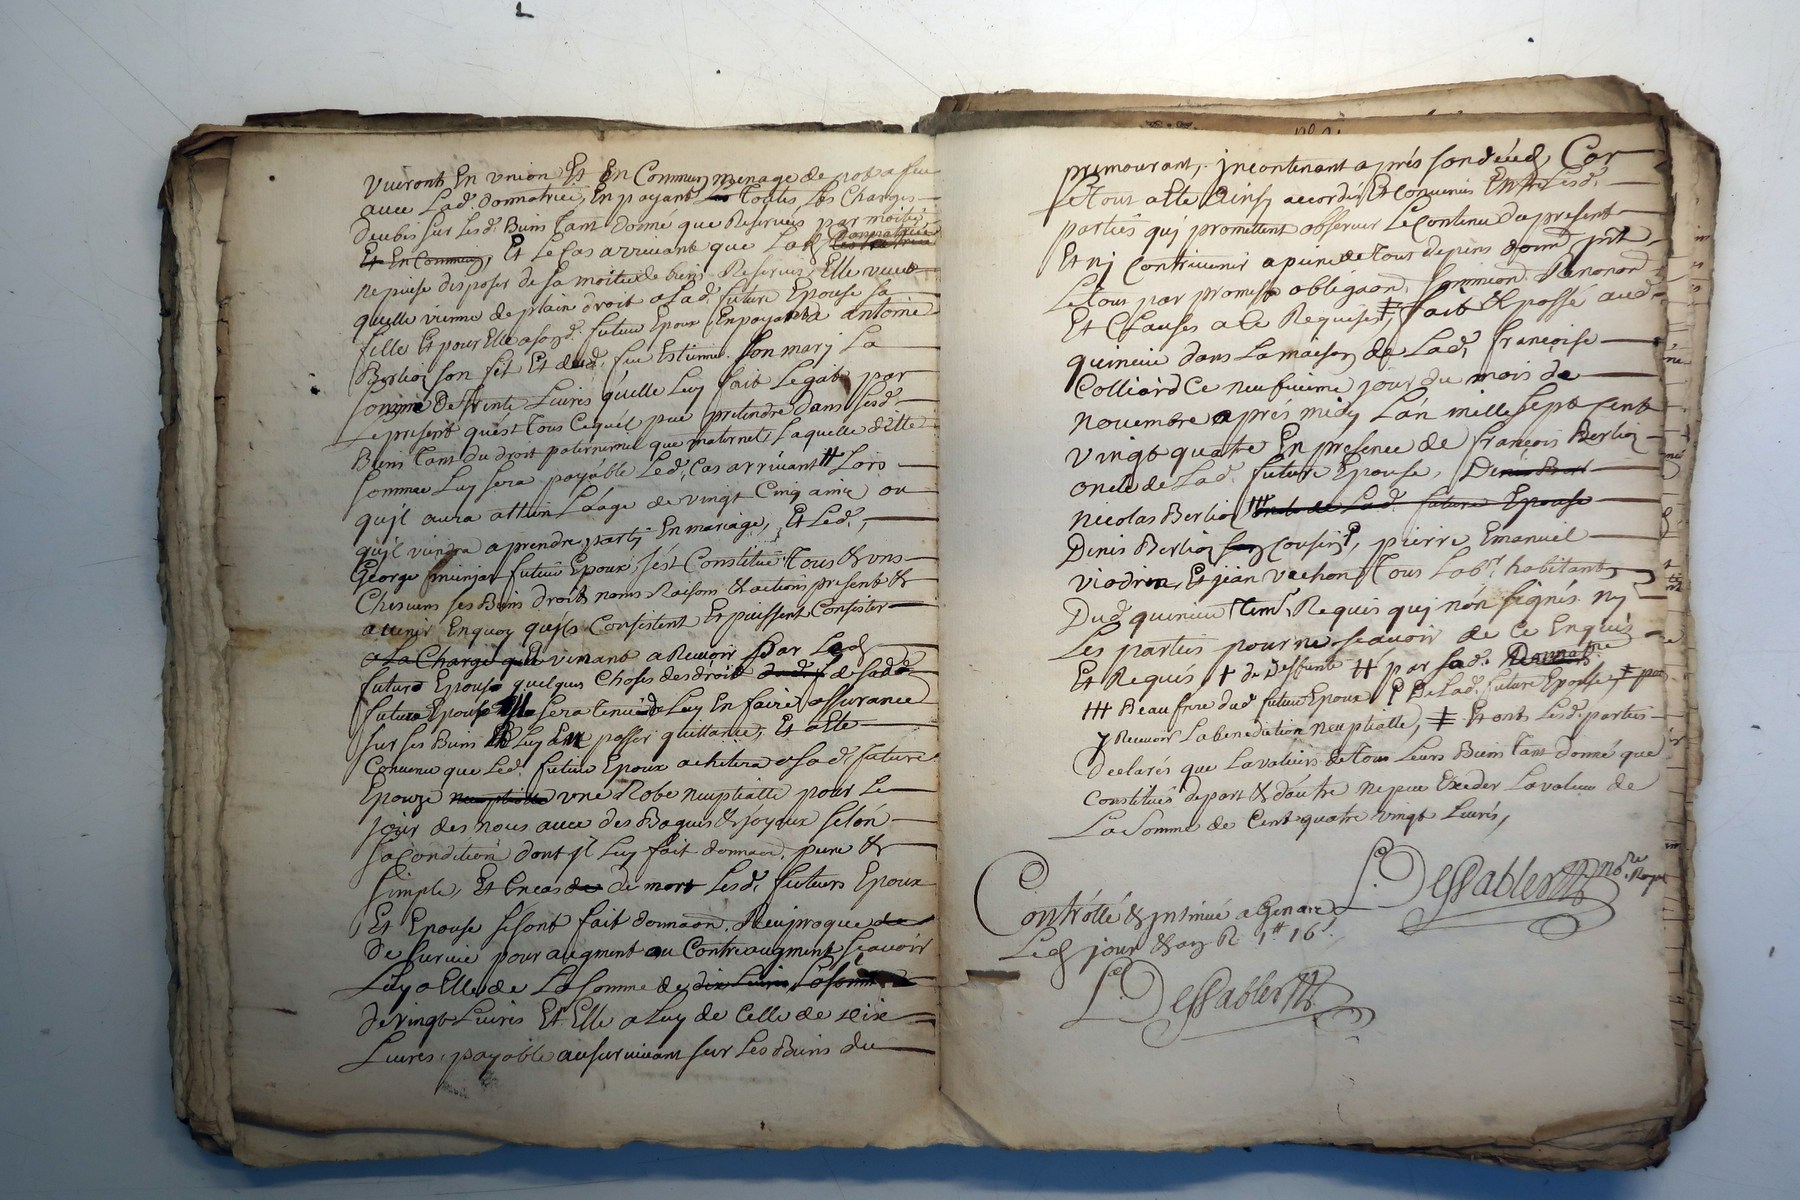 Vivront En Union Et En Commun menage de pot a feu
avec Lad. donnatrice, En payant Toutes Les Charges
deubes sur Lesd. Biens Tant donné que Reservés par moitié
Et En Commun, Et Le Cas arrivant que Lad. donnatrice
ne puisse disposer de sa moitié de biens Reservés Elle veut
quelle vienne de plain droit a Lad. future Epouse sa
fille Et pour Elle a sond. futur Epoux En payant a antoine
Berlioz son fils Et dud. feu Estienne son mary La
somme De trente Livres qu'elle Luy fait Legat par
Le present quest Tous Ce quil peut pretendre dans Lesd.
Biens Tant du droit paternel que maternel, Laquelle ditte
somme Luy sera payable Led. Cas arrivant # Lors
quil aura attin Laage de vingt Cinq ans ou
quil viendra a prendre party En mariage, Et Led.
George futur Epoux, s'est Constitué Tous & uns
Chescuns ses Biens droits noms Raisons & actions present &
avenir En quoy qu'ils Consistent Et puissent Consister
a La Charge que venant a Recevoir par Led.
futur Epoux quelques Choses des droits de sad.
future Epouse sera Tenu de Luy En faire assurance
sur ses Biens Et Luy En passer quittance, Et a Esté
Convenu que Led. futur Epoux achetera a Sad. future
Epouze neuptialle une Robe neuptialle pour Le
jour des nous avec des Bagues & joyaux selon
sa Condition dont jl Luy fait donnaon. pure &
simple, Et En cas de mort Lesd. futurs Epoux
Et Epouse se sont fait donnaon. Reciproque
de survie pour augment ou Contreaugment sçavoir
Luy a Elle de La somme de dix Livres La somme
de vingt Livres Et Elle a Luy de Celle de dix
Livres, payable au survivant sur Les Biens du
premourant, jncontenant aprés son décéd, Car
Le Tous a esté Ainsy accordé & Convenus Entre Lesd.
parties quj promettent observer Le Contenu du present
Et nj Contrevenir a peine de Tous depens domd. jnt.
Le tous par promess obligaon. soumion. Renonon.
Et Clauses a Ce Requises, ‡ fait & passé aud.
quinciu dans La maison de Lad. françoise
Colliard Ce neufvieme jour du mois de
novembre aprés midy L'an mille sept Cent
vingt quatre En presence de françois Berlioz
oncle de Lad. future Epouse,
necolas Berlioz ‡‡‡ oncle de Lad. future Epouse
Denis Berlioz Cousin, pierre Emanuel
Viodrin, Et jean Vachon Tous Labr. habitants
Dud. quinciu Tem. Requis quj non signés nj
Les parties pour ne sçavoir de Ce Enquis
Et Requis + de Deffunte ++ par Sad. donnatrice
+++ Beau frere dud. futur Epoux De Lad. future Epouse, ‡ pour
y Recevoir La benediction neuptialle, ‡ Et ont Lesd. parties
Declarés que La valeurs de Tous Leurs Biens Tant donné que
Constitués de part & d'autre ne peu Exceder La valeur de
La Somme de Cent quatre vingt Livres,
Dessablez nore. Royal
Controllé & jnsinué a
Led. jour & an R. 1# 16s.
Dessablez